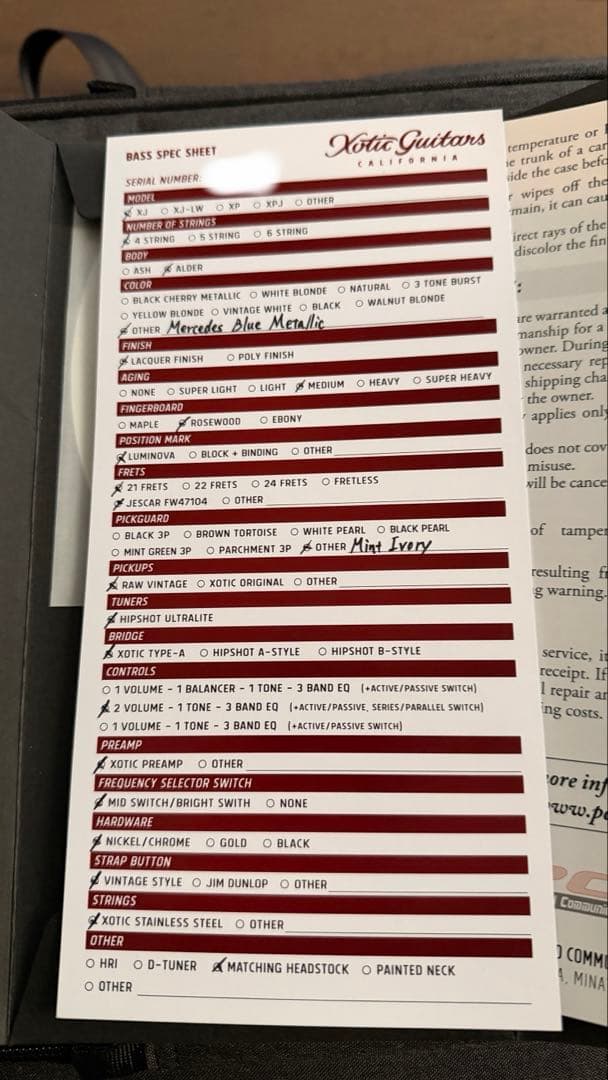 BASS SPEC SHEET
Xotic Guitars
CALIFORNIA
SERIAL NUMBER:
MODEL
XJ XJ-LW XP XPJ OTHER
NUMBER OF STRINGS
4 STRING 5 STRING 6 STRING
BODY
ASH ALDER
COLOR
BLACK CHERRY METALLIC WHITE BLONDE NATURAL 3 TONE BURST
YELLOW BLONDE VINTAGE WHITE BLACK WALNUT BLONDE
OTHER Mercedes Blue Metallic
FINISH
LACQUER FINISH POLY FINISH
AGING
NONE SUPER LIGHT LIGHT MEDIUM HEAVY SUPER HEAVY
FINGERBOARD
MAPLE ROSEWOOD EBONY
POSITION MARK
LUMINOVA BLOCK + BINDING OTHER
FRETS
21 FRETS 22 FRETS 24 FRETS FRETLESS
JESCAR FW47104 OTHER
PICKGUARD
BLACK 3P BROWN TORTOISE WHITE PEARL BLACK PEARL
MINT GREEN 3P PARCHMENT 3P OTHER Mint Ivory
PICKUPS
RAW VINTAGE XOTIC ORIGINAL OTHER
TUNERS
HIPSHOT ULTRALITE
BRIDGE
XOTIC TYPE-A HIPSHOT A-STYLE HIPSHOT B-STYLE
CONTROLS
1 VOLUME - 1 BALANCER - 1 TONE - 3 BAND EQ (+ACTIVE/PASSIVE SWITCH)
2 VOLUME - 1 TONE - 3 BAND EQ (+ACTIVE/PASSIVE, SERIES/PARALLEL SWITCH)
1 VOLUME - 1 TONE - 3 BAND EQ (+ACTIVE/PASSIVE SWITCH)
PREAMP
XOTIC PREAMP OTHER
FREQUENCY SELECTOR SWITCH
MID SWITCH/BRIGHT SWITH NONE
HARDWARE
NICKEL/CHROME GOLD BLACK
STRAP BUTTON
VINTAGE STYLE JIM DUNLOP OTHER
STRINGS
XOTIC STAINLESS STEEL OTHER
OTHER
HRI D-TUNER MATCHING HEADSTOCK PAINTED NECK
OTHER
temperature or
trunk of a car
ide the case befo
wipes off the
main, it can cau
irect rays of the
discolor the fin
are warranted a
manship for a
owner. During
necessary rep
shipping cha
the owner.
applies only
does not cov
misuse.
will be cance
of tamper
resulting fr
g warning.
service, it
receipt. If
l repair an
ing costs.
ore inf
www.p
Communi
COMM
A, MINA